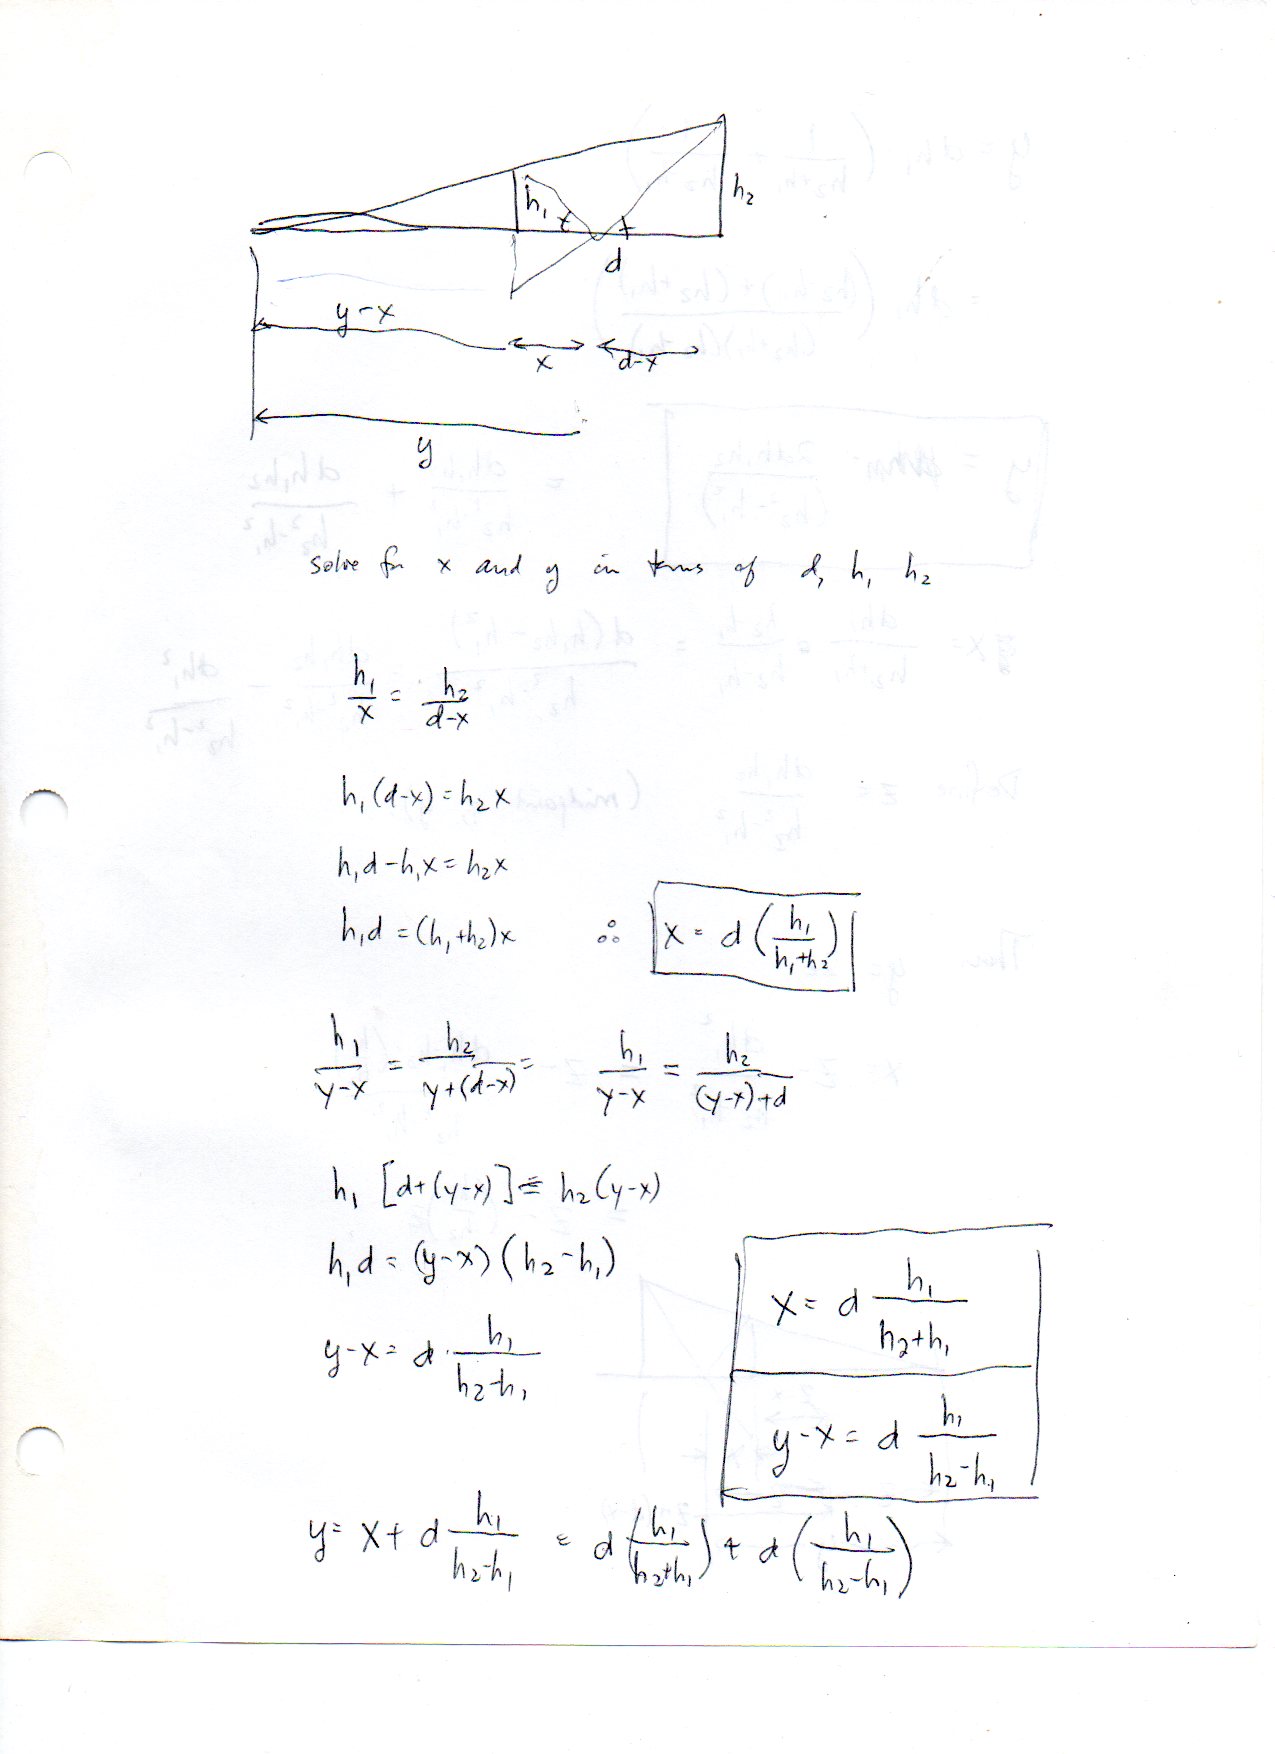 h₁ h₂
d
y-x
x d-x
y
solve for x and y in terms of d, h₁ h₂
h₁/x = h₂/(d-x)
h₁(d-x) = h₂x
h₁d-h₁x = h₂x
h₁d = (h₁+h₂)x ∴ x = d(h₁/(h₁+h₂))
h₁/(y-x) = h₂/(y+(d-x)) = h₁/(y-x) = h₂/((y-x)+d)
h₁[d+(y-x)] = h₂(y-x)
h₁d = (y-x)(h₂-h₁)
y-x = d · h₁/(h₂-h₁)
x = d h₁/(h₂+h₁)
y-x = d h₁/(h₂-h₁)
y = x + d h₁/(h₂-h₁) = d(h₁/(h₂+h₁)) + d(h₁/(h₂-h₁))